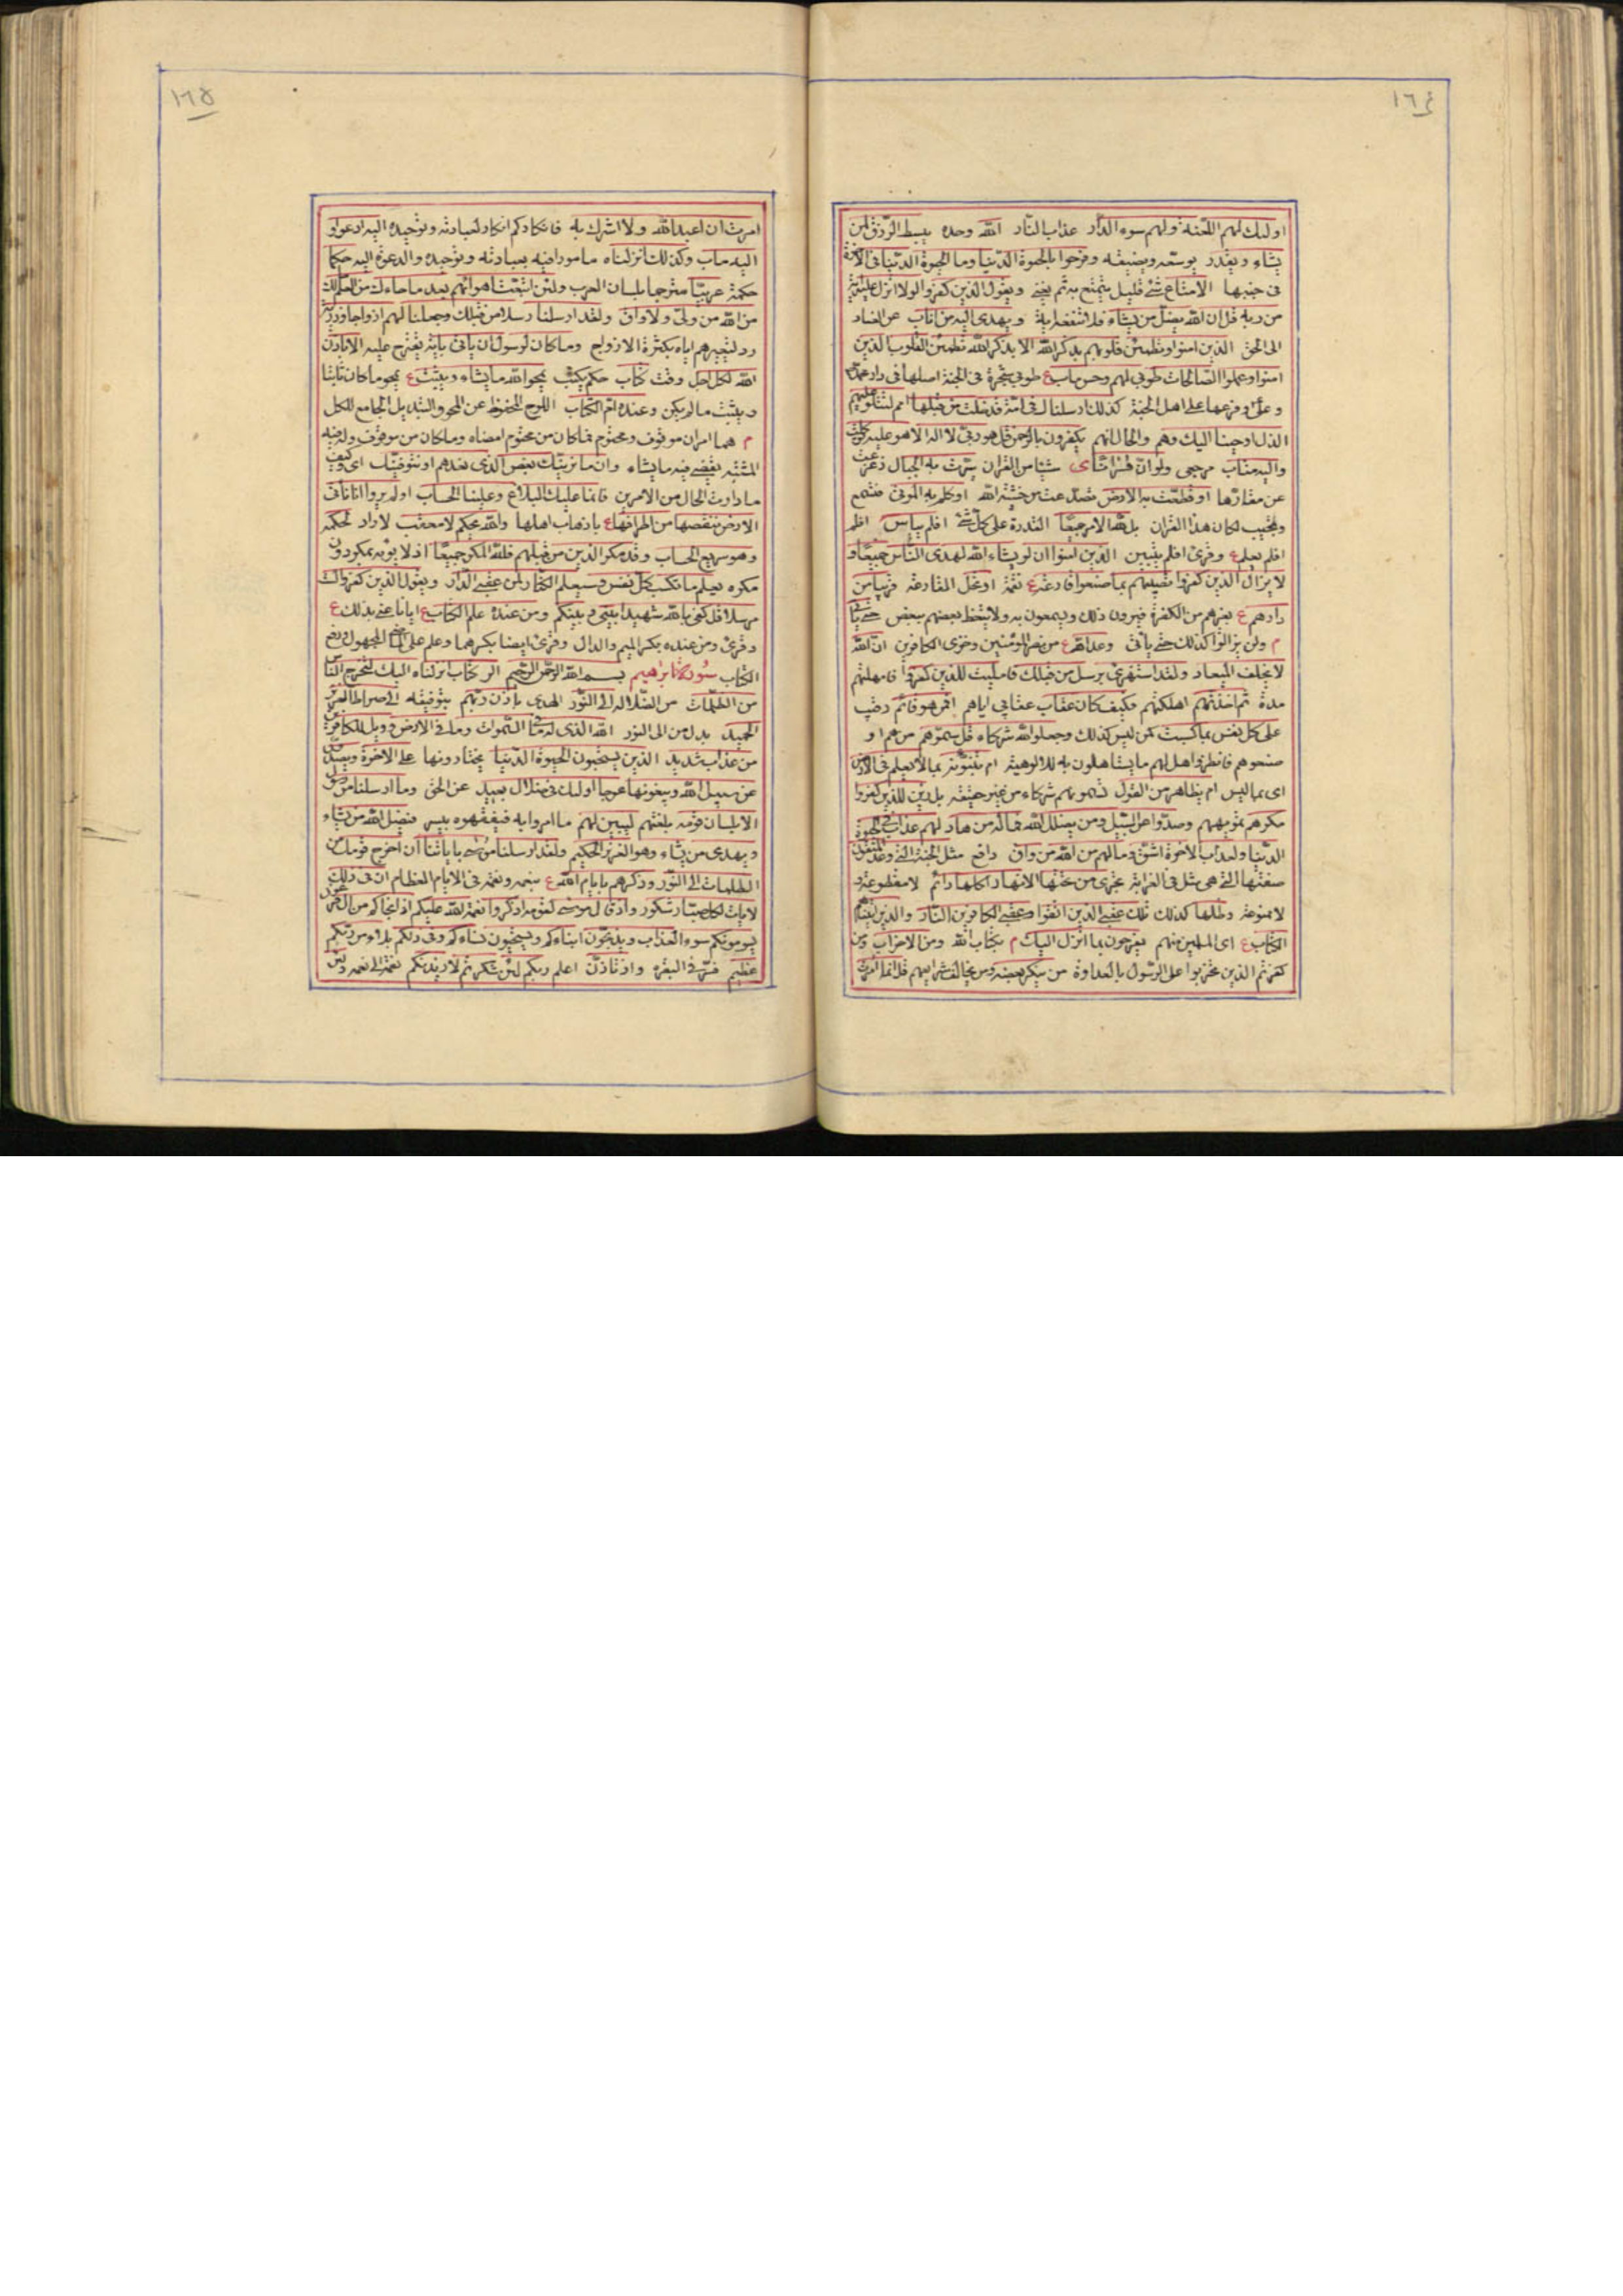 ١٦٤
اولئك لهم اللعنة ولهم سوء الدار عذاب النار الله وحده يبسط الرزق لمن
يشاء ويقدر يوسعه ويضيقه وفرحوا بالحيوة الدنيا وما الحيوة الدنيا فى الاخرة
فى جنبها الا متاع شئ قليل يتمتع به ثم يفنى ويقول الذين كفروا لولا انزل عليه اية
من ربه قل ان الله يضل من يشاء ويهدى اليه من اناب عن الفساد
الى الحق الذين امنوا وتطمئن قلوبهم بذكر الله الا بذكر الله تطمئن القلوب الذين
امنوا وعملوا الصالحات طوبى لهم وحسن ماب ع طوبى شجرة فى الجنة اصلها فى دار
وعلى وفرعها على اهل الجنة كذلك ارسلناك فى امة قد خلت من قبلها امم لتتلو عليهم
الذى اوحينا اليك وهم والحال انهم يكفرون بالرحمن قل هو ربى لا اله الا هو عليه توكلت
واليه متاب مرجعى ولو ان قرانا شيئا من القران سيرت به الجبال زعزعت
عن مقارها او قطعت به الارض تصدعت من خشية الله او كلم به الموتى فتسمع
وتجيب لكان هذا القران بل لله الامر جميعا القدرة على كل شئ افلم ييأس افلم
افلم يعلم ع وقرئ افلم يتبين الذين امنوا ان لو يشاء الله لهدى الناس جميعا و
لا يزال الذين كفروا تصيبهم بما صنعوا قارعة ع نقمة او تحل القارعة قريبا من
دارهم ع بغيرهم من الكفرة فيرون ذلك ويسمعون به ولا يتعظ بعضهم ببعض حتى ياتى
م ولن يزالوا كذلك حتى ياتى وعد الله ع من نصر المؤمنين وخزى الكافرين ان الله
لا يخلف الميعاد ولقد استهزئ برسل من قبلك فامليت للذين كفروا فامهلتهم
مدة ثم اخذتهم اهلكتهم فكيف كان عقاب عقابى اياهم افمن هو قائم رقيب
على كل نفس بما كسبت كمن ليس كذلك وجعلوا لله شركاء قل سموهم من هم او
صفوهم فانظروا هل لهم ما يستاهلون به للالوهية ام تنبؤنه بما لا يعلم فى الارض
اى بما ليس ام بظاهر من القول تسمونهم شركاء من غير حقيقة بل زين للذين كفروا
مكرهم تمويههم وصدوا عن السبيل ومن يضلل الله فما له من هاد لهم عذاب فى الحيوة
الدنيا ولعذاب الاخرة اشق وما لهم من الله من واق دافع مثل الجنة التى وعد المتقون
صفتها التى هى مثل فى الغرابة تجرى من تحتها الانهار اكلها دائم لا مقطوعة و
لا ممنوعة وظلها كذلك تلك عقبى الذين اتقوا وعقبى الكافرين النار والذين اتيناهم
الكتاب ع اى المسلمين منهم يفرحون بما انزل اليك م بكتاب الله ومن الاحزاب ومن
كفرتم الذين تحزبوا على الرسول بالعداوة من ينكر بعضه وهو ما يخالف شرايعهم قل انما امرت
١٦٥
امرت ان اعبد الله ولا اشرك به فانكاركم انكار لعبادته وتوحيده اليه ادعوا و
اليه ماب وكذلك انزلناه مامورا فيه بعبادته وتوحيده والدعوة اليه حكما
حكمة عربيا مترجما بلسان العرب ولئن اتبعت اهوائهم بعد ما جاءك من العلم مالك
من الله من ولى ولا واق ولقد ارسلنا رسلا من قبلك وجعلنا لهم ازواجا وذرية
رد لتعييرهم اياه بكثرة الازواج وما كان لرسول ان ياتى باية يقترح عليه الا باذن
الله لكل اجل وقت كتاب حكم يكتب يمحوا الله ما يشاء ويثبت ع يمحو ما كان ثابتا
ويثبت ما لم يكن وعنده ام الكتاب اللوح المحفوظ عن المحو والتبديل الجامع للكل
م هما امران موقوف ومحتوم فما كان من محتوم امضاه وما كان من موقوف وله فيه
المشية يقضى فيه ما يشاء وان ما نرينك بعض الذى نعدهم او نتوفينك اى وكيف
ما دارت الحال من الامرين فانما عليك البلاغ وعلينا الحساب اولم يروا انا ناتى
الارض ننقصها من اطرافها ع باذهاب اهلها والله يحكم لا معقب لا راد لحكمه
وهو سريع الحساب وقد مكر الذين من قبلهم فلله المكر جميعا اذ لا يؤبه بمكر دون
مكره يعلم ما تكسب كل نفس وسيعلم الكفار لمن عقبى الدار ويقول الذين كفروا لست
مرسلا قل كفى بالله شهيدا بينى وبينكم ومن عنده علم الكتاب ع ايانا عنى بذلك ع
وقرئ ومن عنده بكسر الميم والدال وقرئ ايضا بكسرهما وعلم على المجهول ورفع
الكتاب سورة ابراهيم بسم الله الرحمن الرحيم الر كتاب انزلناه اليك لتخرج الناس
من الظلمات من الضلالة الى النور الهدى باذن ربهم بتوفيقه الى صراط العزيز
الحميد بدل من الى النور الله الذى له ما فى السموات وما فى الارض وويل للكافرين
من عذاب شديد الذين يستحبون الحيوة الدنيا يختارونها على الاخرة ويصدون
عن سبيل الله ويبغونها عوجا اولئك فى ضلال بعيد عن الحق وما ارسلنا من رسول
الا بلسان قومه بلغتهم ليبين لهم ما امروا به فيفقهوه بيسر فيضل الله من يشاء
ويهدى من يشاء وهو العزيز الحكيم ولقد ارسلنا موسى باياتنا ان اخرج قومك من
الظلمات الى النور وذكرهم بايام الله ع بنعمه ونقمه فى الايام العظام ان فى ذلك
لايات لكل صبار شكور واذ قال موسى لقومه اذكروا نعمة الله عليكم اذ انجاكم من ال فرعون
يسومونكم سوء العذاب ويذبحون ابناءكم ويستحيون نساءكم وفى ذلكم بلاء من ربكم
عظيم فسر فى البقرة واذ تاذن اعلم ربكم لئن شكرتم لازيدنكم نعمة الى نعمة ولئن